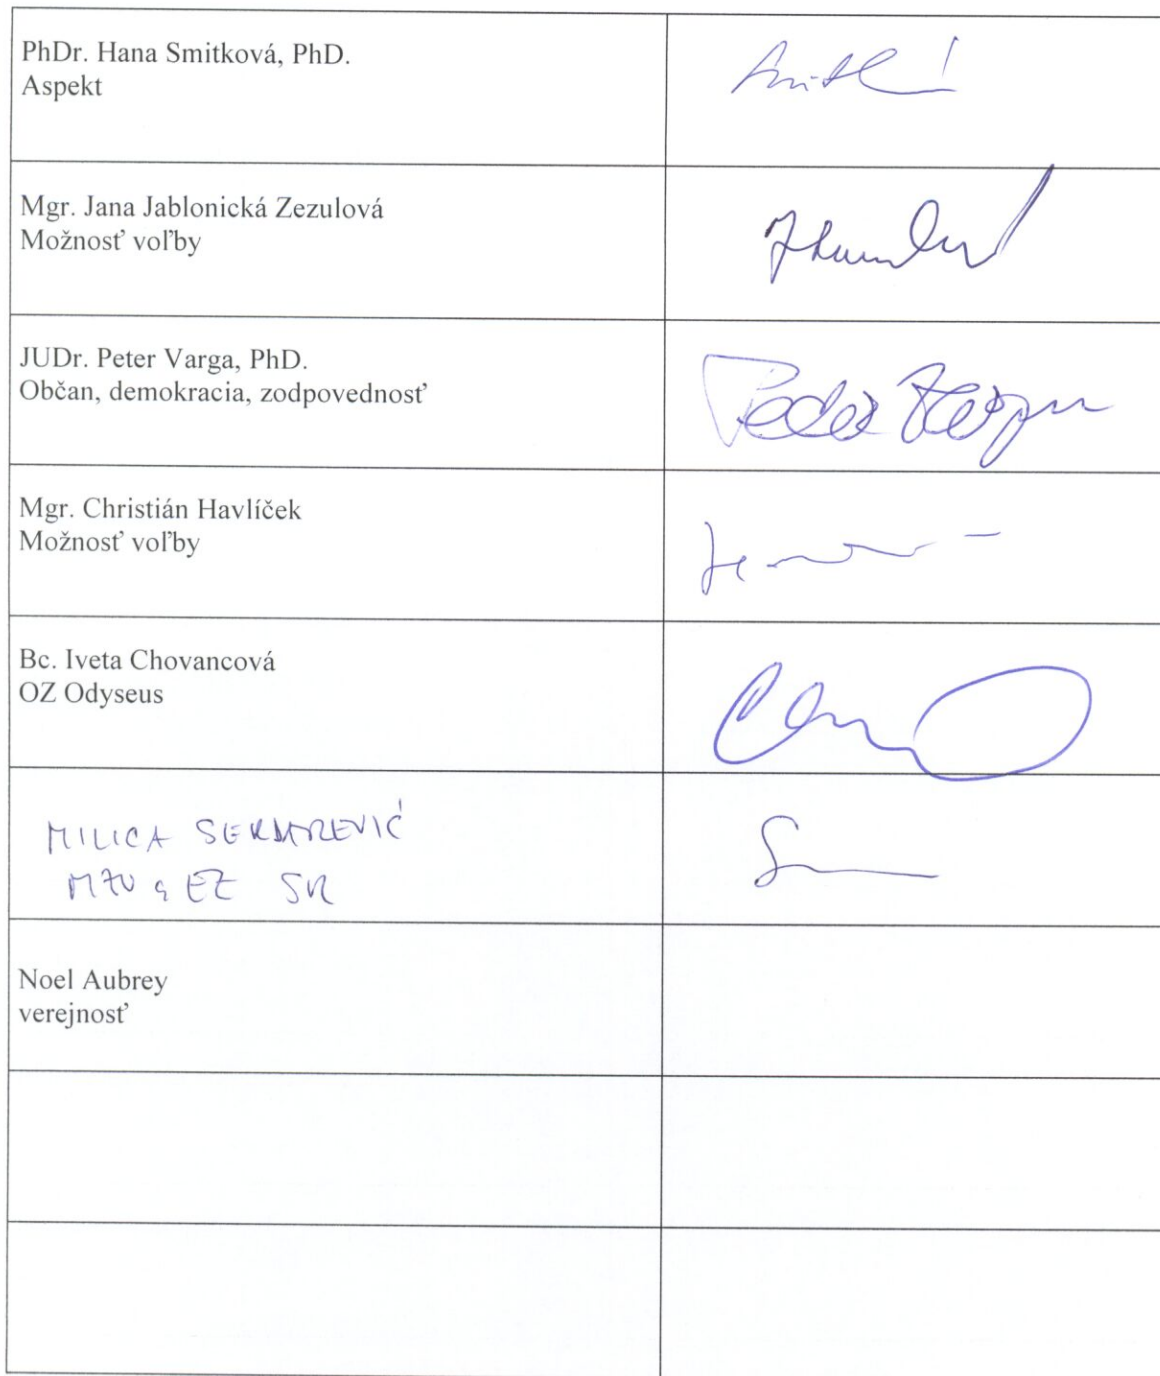 PhDr. Hana Smitková, PhD.
Aspekt
Mgr. Jana Jablonická Zezulová
Možnosť voľby
JUDr. Peter Varga, PhD.
Občan, demokracia, zodpovednosť
Mgr. Christián Havlíček
Možnosť voľby
Bc. Iveta Chovancová
OZ Odyseus
MILICA
MZV a EZ SR
Noel Aubrey
verejnosť